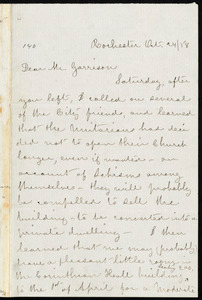 140
Rochester Oct. 24/58
Dear Mr Garrison
Saturday, after
you left, I called on several
of the City friends, and learned
that the Unitarian had deci
ded not to open their Church
longer, even if
account of Schism among
themselves - they will probably
be compelled to sell the
building - to be converted into
a private dwelling - I then
learned that we may probably
have a pleasant little room in
the Corinthian Hall building
to the 1st of April for a moderate